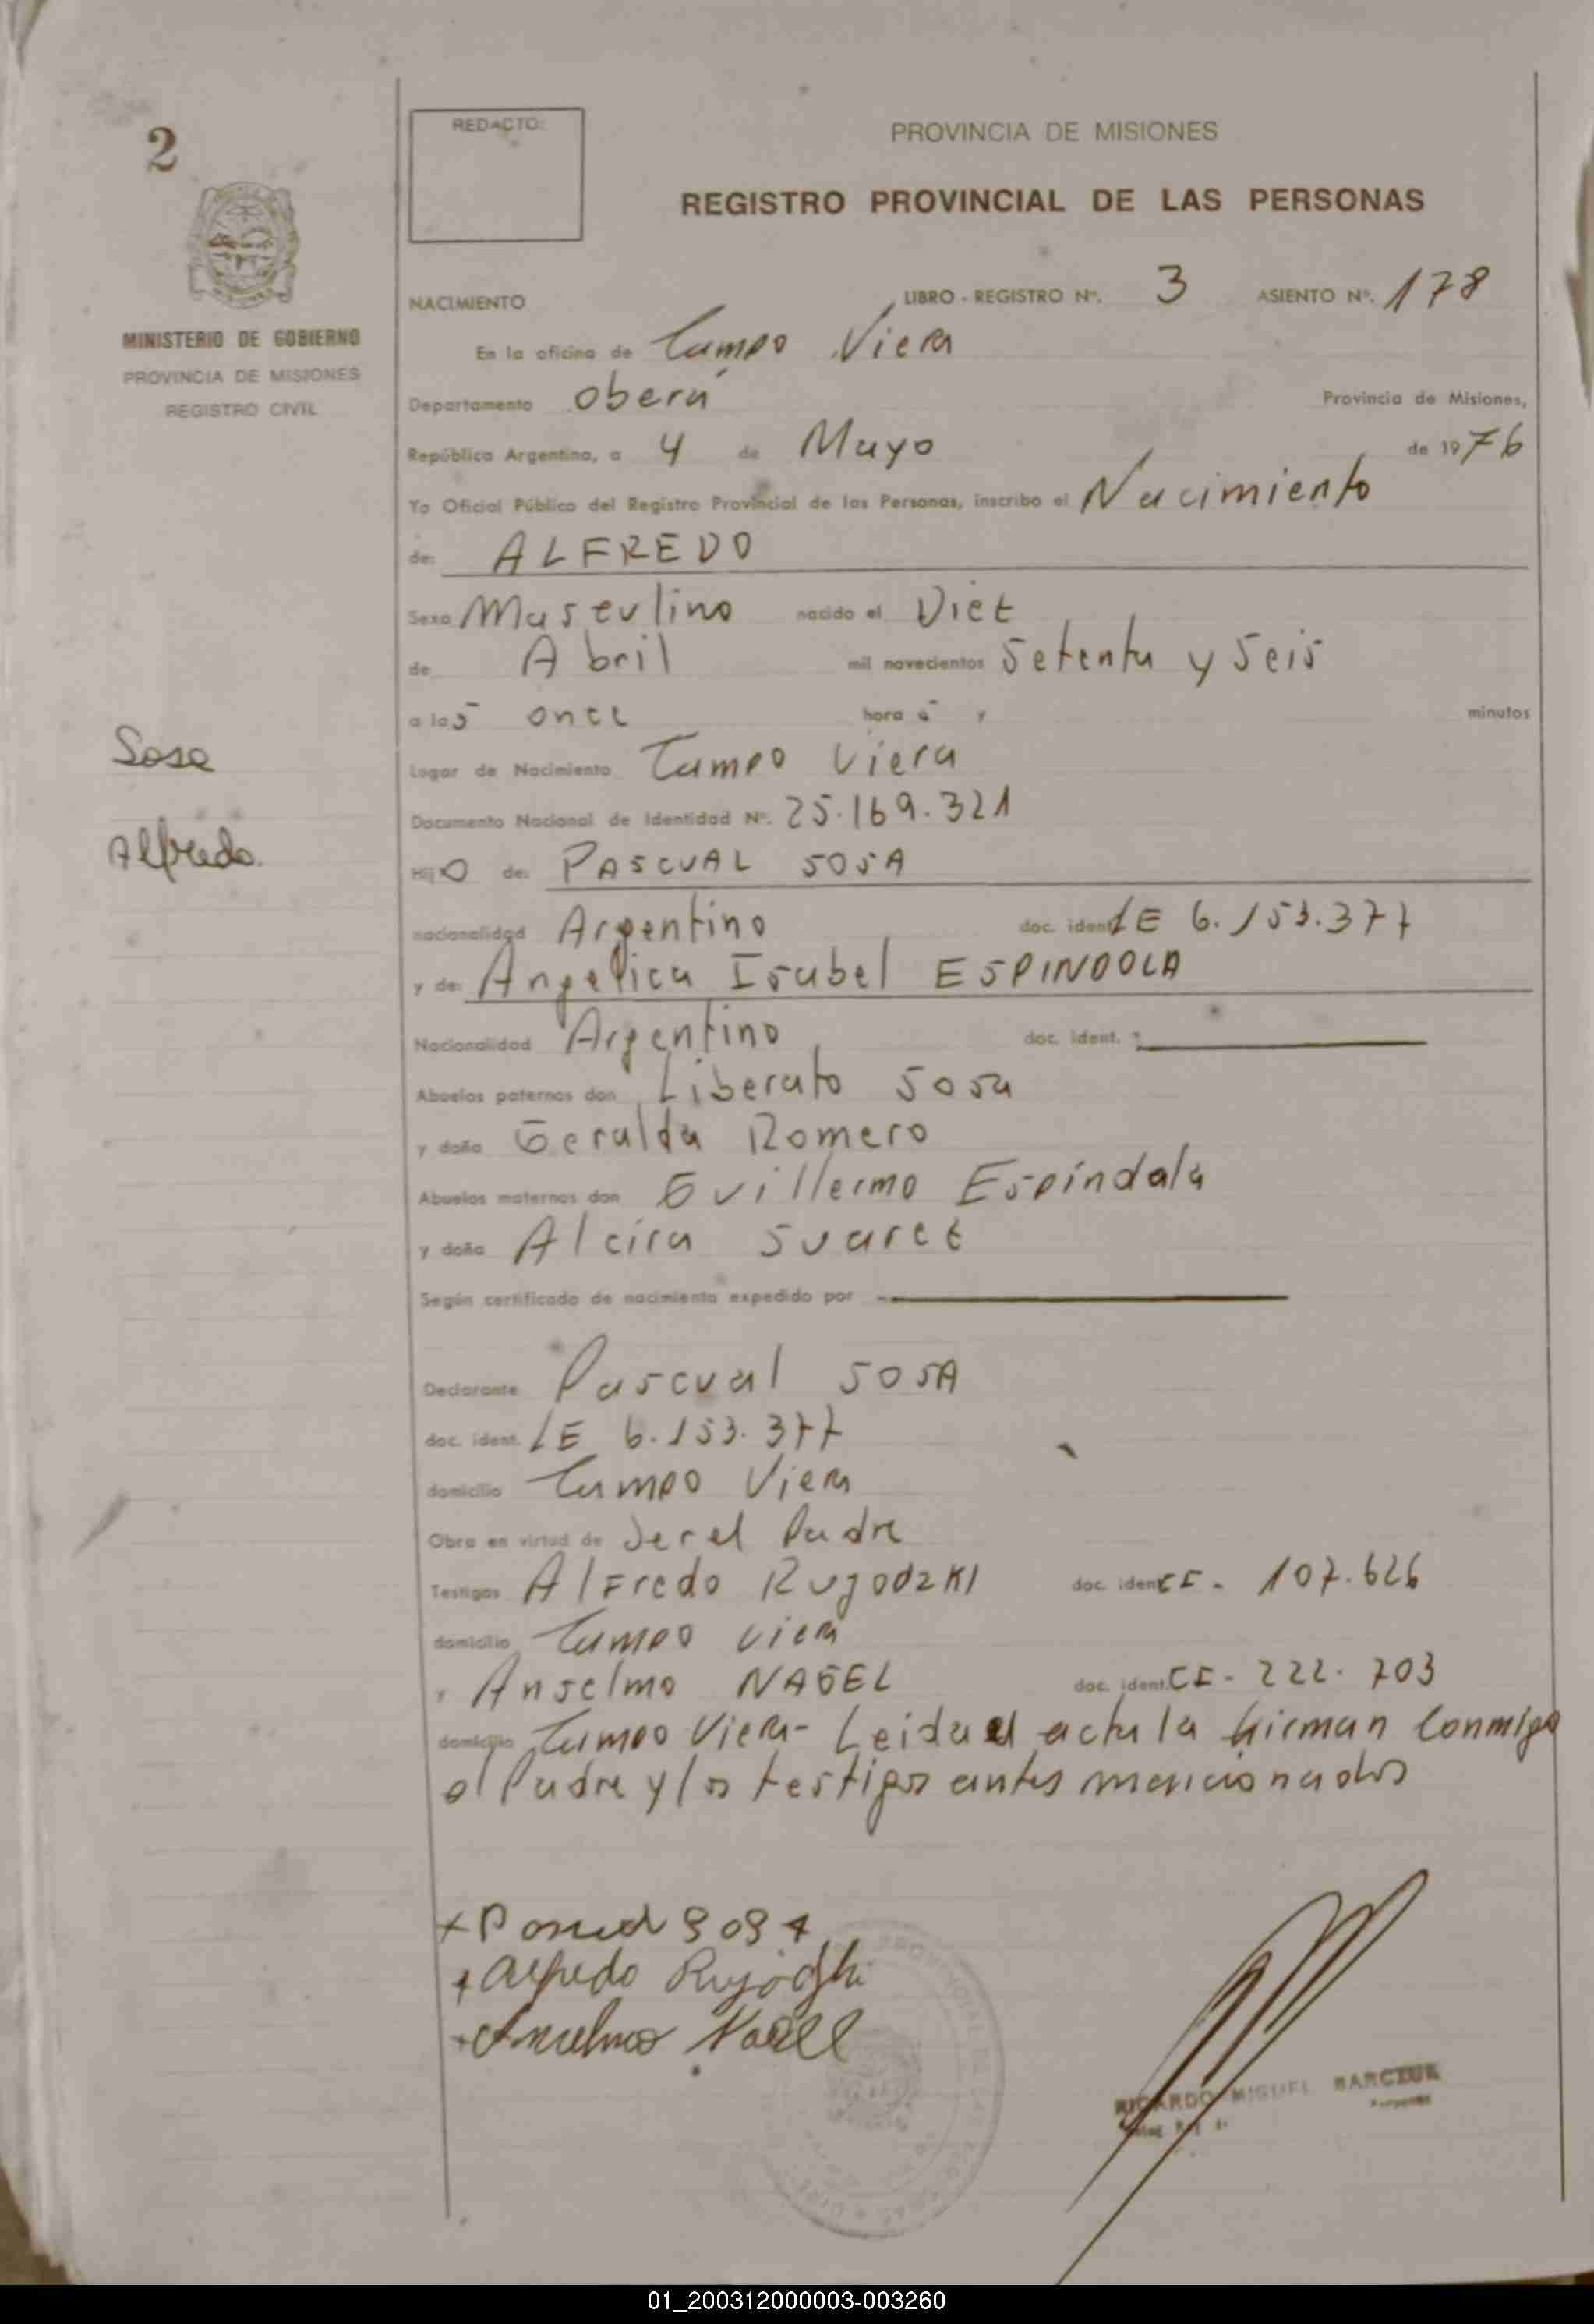 2
MINISTERIO DE GOBIERNO
PROVINCIA DE MISIONES
REGISTRO CIVIL
Sosa
Alfredo.
REDACTO:
PROVINCIA DE MISIONES
REGISTRO PROVINCIAL DE LAS PERSONAS
NACIMIENTO LIBRO - REGISTRO Nº. 3 ASIENTO Nº. 178
En la oficina de Campo Viera
Departamento Oberá Provincia de Misiones,
República Argentina, a 4 de Mayo de 1976
Yo Oficial Público del Registro Provincial de las Personas, inscribo el Nacimiento
de: ALFREDO
Sexo Masculino nacido el Diez
de Abril mil novecientos Setenta y Seis
a las once horas y minutos
Lugar de Nacimiento Campo Viera
Documento Nacional de Identidad Nº. 25.169.321
Hijo de: PASCUAL SOSA
nacionalidad Argentino doc. ident. LE 6.153.377
y de: Angelica Isabel ESPINDOLA
Nacionalidad Argentino doc. ident.
Abuelos paternos don Liberato Sosa
y doña Geralda Romero
Abuelos maternos don Guillermo Espíndala
y doña Alcira Suarez
Según certificado de nacimiento expedido por
Declarante Pascual SOSA
doc. ident. LE 6.153.377
domicilio Campo Viera
Obra en virtud de Ser el Padre
Testigos Alfredo Rugodzki doc. ident. CI- 107.626
domicilio Campo Viera
y Anselmo NAGEL doc. ident. CI- 222.703
domicilio Campo Viera- Leida el acta la firman Conmigo
el Padre y los testigos antes mencionados
+ Pascual Sosa
+ Alfredo
+ Anselmo Nagel
RICARDO MIGUEL BARCZUK
01_200312000003-003260